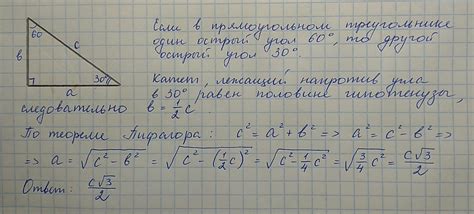 Если в прямоугольном треугольнике
один острый угол 60°, то другой
острый угол 30°.
60
c
в
30°
a
Катет, лежащий напротив угла
в 30° равен половине гипотенузы,
следовательно в = 1/2 c
По теореме Пифагора: c² = a² + в² => a² = c² - в² =>
=> a = √(c² - в²) = √(c² - (1/2 c)²) = √(c² - 1/4 c²) = √(3/4 c²) = c√3/2
Ответ: c√3/2